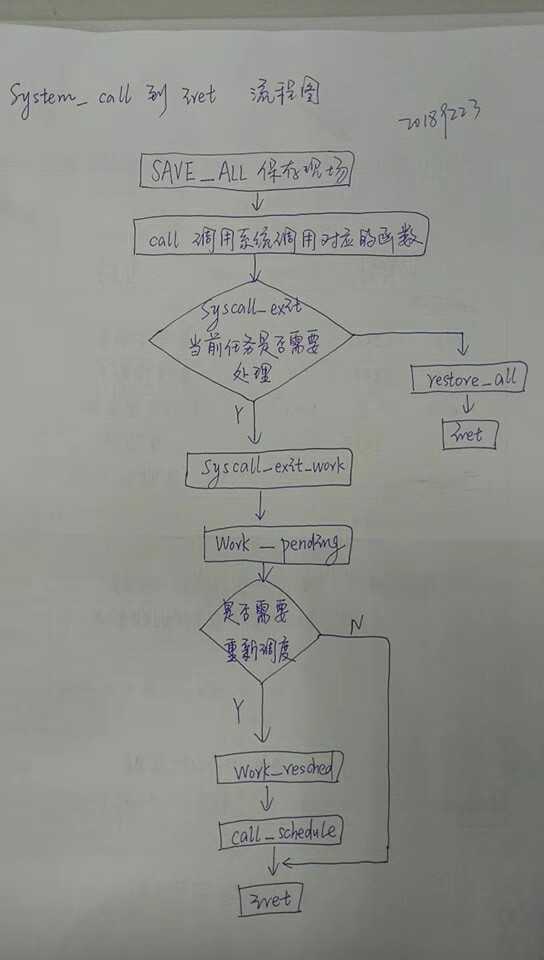 System_call 到 iret 流程图
2018分223
SAVE_ALL 保存现场
call 调用系统调用对应的函数
Syscall_exit
当前任务是否需要
处理
restore_all
iret
Y
Syscall_exit_work
Work_pending
是否需要
重新调度
N
Y
Work_resched
call_schedule
iret